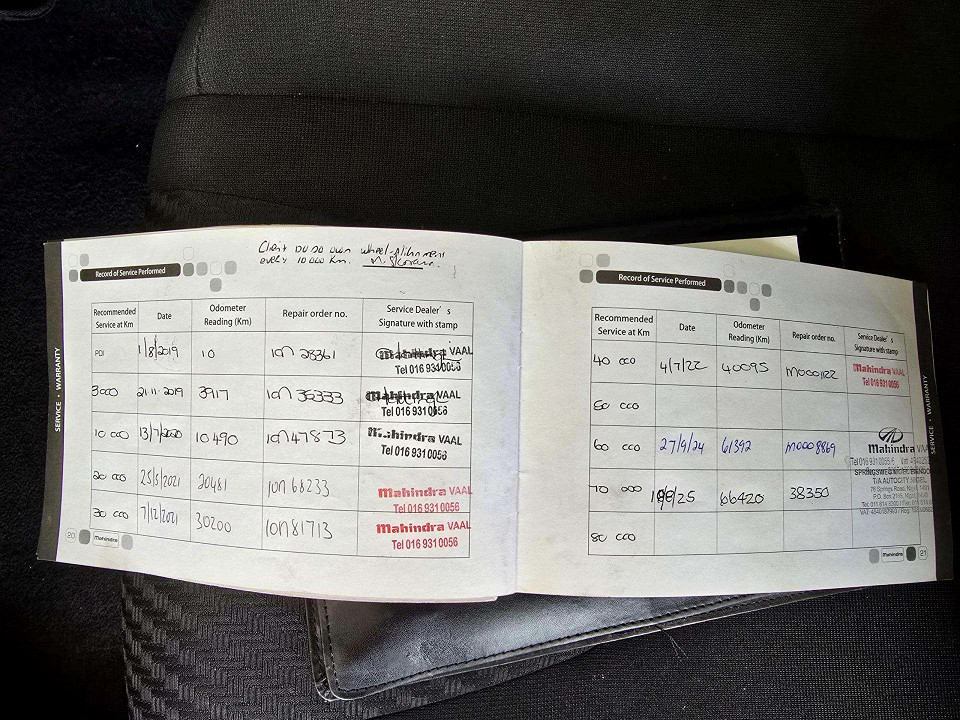 Client to do own wheel-alignment
every 10 000 Km.
Record of Service Performed
Recommended Service at Km Date Odometer Reading (Km) Repair order no. Service Dealer's Signature with stamp
PDI 1/8/2019 10 10n 28361 Mahindra VAAL
Tel 016 931 0056
3000 21.11.2019 3917 10n 35333 VAAL
Tel 016 931 0056
10 000 13/7/2020 10490 10n 47873 Mahindra VAAL
Tel 016 931 0056
20 000 25/5/2021 20481 10n 68233 Mahindra VAAL
Tel 016 931 0056
30 000 7/12/2021 30200 10n 81713 Mahindra VAAL
Tel 016 931 0056
20 Mahindra
SERVICE • WARRANTY
Record of Service Performed
Recommended Service at Km Date Odometer Reading (Km) Repair order no. Service Dealer's Signature with stamp
40 000 4/7/22 40095 M000122 Mahindra VAAL
Tel 016 931 0056
50 000
60 000 27/9/24 61392 M0008869 Mahindra VAA
Tel 016 931 0055/6
70 000 /25 66420 38350
T/A AUTOCITY NIGEL
76 Springs Road, Nigel, 1491
80 000
Mahindra 21
SERVICE • WARRANTY